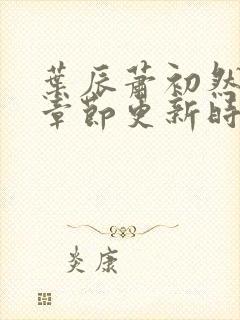 葉辰蕭初然
章節更新時
炎康